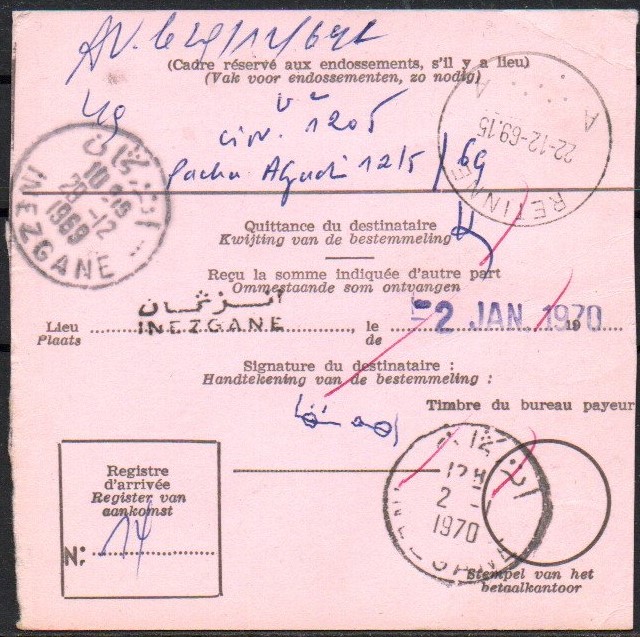 AV. le 29/12/69
(Cadre réservé aux endossements, s'il y a lieu)
(Vak voor endossementen, zo nodig)
49
cin. 1205
Pacha Agadi 12/5/69
RETINNE
22-12-69.15
A A
إنزكان
10H15
29-12
1969
INEZGANE
Quittance du destinataire
Kwijting van de bestemmeling
Reçu la somme indiquée d'autre part
Ommestaande som ontvangen
إنزكان
Lieu INEZGANE, le -2 JAN. 1970 19
Plaats de
Signature du destinataire :
Handtekening van de bestemmeling :
Timbre du bureau payeur
إنزكان
12H
2 -
1970
Registre
d'arrivée
Register van
aankomst
N: 14
Stempel van het
betaalkantoor